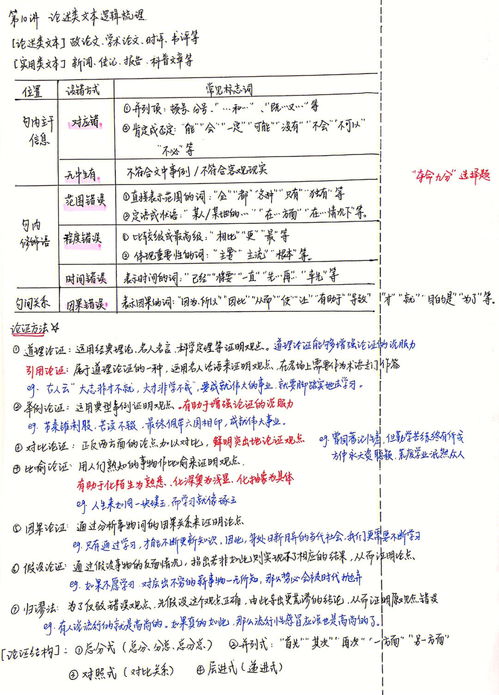 第10讲 论述类文本逻辑梳理
[论述类文本] 政论文、学术论文、时评、书评等
[实用类文本] 新闻、传记、报告、科普文章等
位置 误错方式 常见标志词
句内主干信息 对应错 ①并列项：顿号、分号、"…和…"、"既…又…"等
②肯定或否定："能""会""一定""可能""没有""不会""不可以"
"不必"等
无中生有 不符合文中事例/不符合客观现实
"夺命九分"选择题
句内修饰语 范围错误 ①直接表示范围的词："全""都""各种""只有""独有"等
②定语或状语："某人/某地的…""在…方面""在…情况下"等。
程度错误 ①比较级或最高级："相比""更""最"等
②体现重要性的词："主要""主流""根本"等。
时间错误 表示时间的词："已经""将要""一直""先…再""率先"等
句间关系 因果错误 表示因果的词："因为…所以""因此""从而""使""让""有助于""导致" "才""就""目的是""为了"等
论证方法☆
①道理论证：运用经典理论、名人名言、科学定理等证明观点。道理论证能够增强论证的说服力
引用论证：属于道理论证的一种，运用名人话语来证明观点，在考场上需要作为术语去们作答
eg. 古人云"大志非才不就，大才非学不成"，要成就伟大的事业，就要脚踏实地去学习。
②举例论证：运用典型事例证明观点。有助于增强论证的说服力
eg. 苏秦锥刺股，苦读不辍，最终佩带六国相印，成就伟大事业。
③对比论证：正反两方面的论点加以对比，鲜明突出地论证观点 eg. 曾国藩
④比喻论证：用人们熟知的事物作比喻来证明观点。
有助于化陌生为熟悉、化深奥为浅显、化抽象为具体
eg. 人生来如同一块璞玉，而学习就像琢玉
⑤因果论证：通过分析事物间的因果关系来证明论点
eg. 只有通过学习，才能不断更新知识，因此，身处日新月异的当代社会，我们更需要不断学习
⑥假设论证：通过假设事物的反面情况，指出若非如此，则实现不了相应的结果，从而证明论点。
eg. 如果不愿学习，对层出不穷的新事物一无所知，那么势必会被时代抛弃
⑦归谬法：为了反驳错误观点，先假设这个观点正确，由此导出更荒谬的结论，从而证明原观点错误
eg. 有人说流行的就是高尚的，如果真的如此，那么流行性感冒应该也是高尚的了。
[论证结构]：①总分式（总分、分总、总分总） ②并列式："首先""其次""再次""一方面""另一方面"
③对照式（对比关系） ④层进式（递进式）